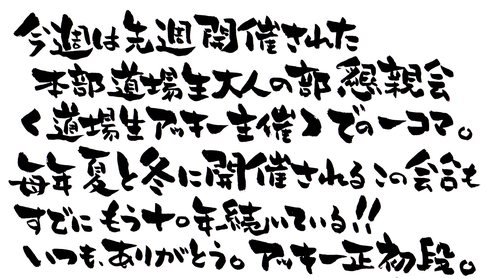 今週は先週開催された
本部道場生大人の部懇親会
〈道場生アッキー主催〉での一コマ。
毎年夏と冬に開催されるこの会合も
すでにもう十〇年続いている!!
いつも、ありがとう。アッキー正初段。